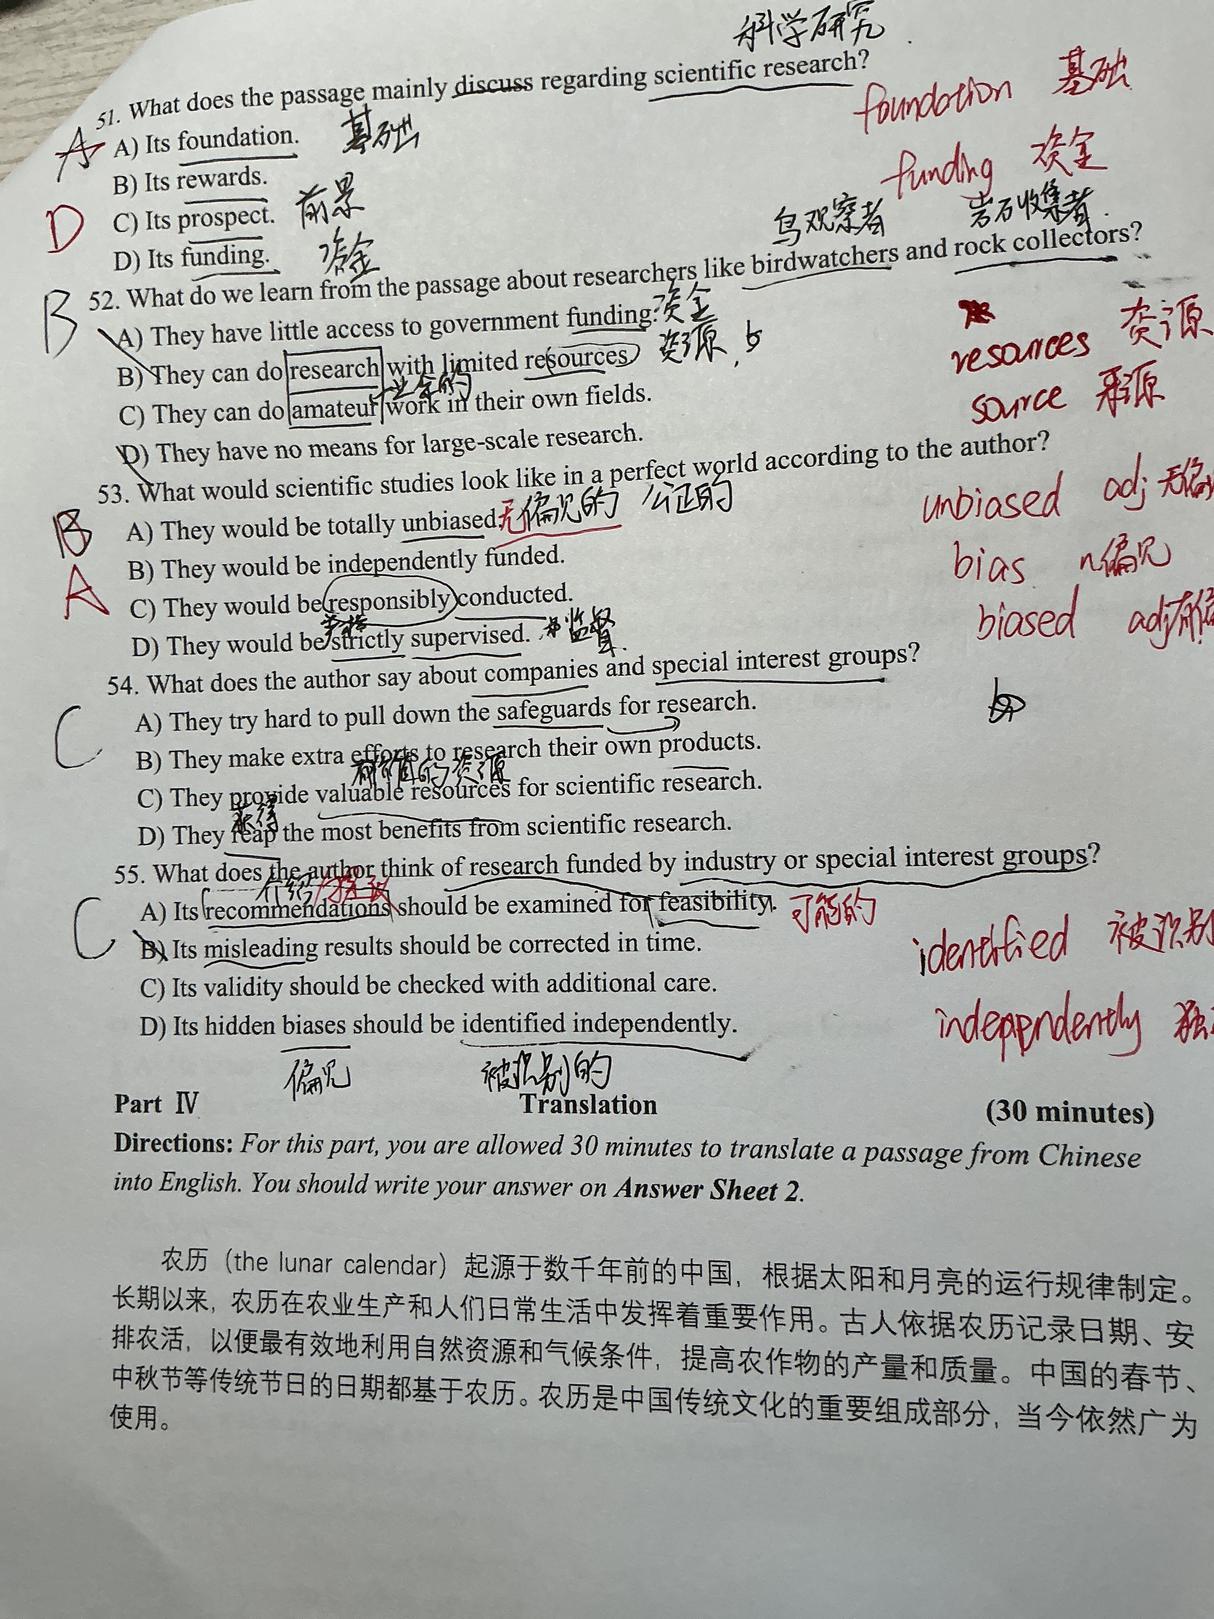 科学研究
51. What does the passage mainly discuss regarding scientific research?
foundation 基础
A A) Its foundation. 基础
funding 资金
B) Its rewards.
D C) Its prospect. 前景
D) Its funding. 资金
鸟观察者 岩石收集者
52. What do we learn from the passage about researchers like birdwatchers and rock collectors?
B A) They have little access to government funding. 资金
B) They can do research with limited resources 资源
resources 资源
业余的
C) They can do amateur work in their own fields.
source 来源
D) They have no means for large-scale research.
53. What would scientific studies look like in a perfect world according to the author?
B A) They would be totally unbiased 无偏见的 公正的
unbiased adj 无偏
B) They would be independently funded.
bias n 偏见
A C) They would be responsibly conducted.
biased adj 有偏
D) They would be strictly supervised. 监督
54. What does the author say about companies and special interest groups?
C A) They try hard to pull down the safeguards for research.
B) They make extra efforts to research their own products.
有价值的资源
C) They provide valuable resources for scientific research.
获得
D) They reap the most benefits from scientific research.
55. What does the author think of research funded by industry or special interest groups?
介绍
C A) Its recommendations should be examined for feasibility. 可能的
B) Its misleading results should be corrected in time.
identified 被识别
C) Its validity should be checked with additional care.
D) Its hidden biases should be identified independently.
independently 独
偏见 被识别的
Part Ⅳ Translation (30 minutes)
Directions: For this part, you are allowed 30 minutes to translate a passage from Chinese
into English. You should write your answer on Answer Sheet 2.
农历（the lunar calendar）起源于数千年前的中国，根据太阳和月亮的运行规律制定。
长期以来，农历在农业生产和人们日常生活中发挥着重要作用。古人依据农历记录日期、安
排农活，以便最有效地利用自然资源和气候条件，提高农作物的产量和质量。中国的春节、
中秋节等传统节日的日期都基于农历。农历是中国传统文化的重要组成部分，当今依然广为
使用。